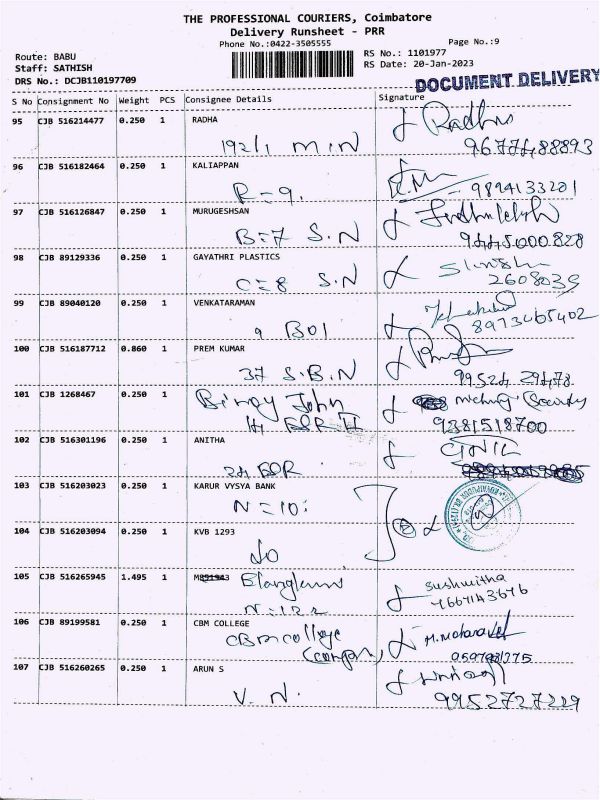 THE PROFESSIONAL COURIERS, Coimbatore
Delivery Runsheet - PRR
Phone No.:0422-3505555
Page No.:9
Route: BABU
RS No.: 1101977
Staff: SATHISH
RS Date: 20-Jan-2023
DRS No.: DCJB110197709
DOCUMENT DELIVERY
S No Consignment No Weight PCS Consignee Details Signature
95 CJB 516214477 0.250 1 RADHA Radha
192/1 MIN 9677488893
96 CJB 516182464 0.250 1 KALIAPPAN
R=9. 9894133201
97 CJB 516126847 0.250 1 MURUGESHSAN
B=7 S.N 9445000828
98 CJB 89129336 0.250 1 GAYATHRI PLASTICS
C=8 S.N 2608039
99 CJB 89040120 0.250 1 VENKATARAMAN
9 BOI 8973465402
100 CJB 516187712 0.860 1 PREM KUMAR
37 S.B.N 99524 29478
101 CJB 1268467 0.250 1 Binoy John
141 BOR II 9381518700
102 CJB 516301196 0.250 1 ANITHA
24 BOR
103 CJB 516203023 0.250 1 KARUR VYSYA BANK
N=10:
104 CJB 516203094 0.250 1 KVB 1293
105 CJB 516265945 1.495 1 Sushmitha
N=122 7667143676
106 CJB 89199581 0.250 1 CBM COLLEGE
CBM college
(company)
107 CJB 516260265 0.250 1 ARUN S
V. N. 9952727229